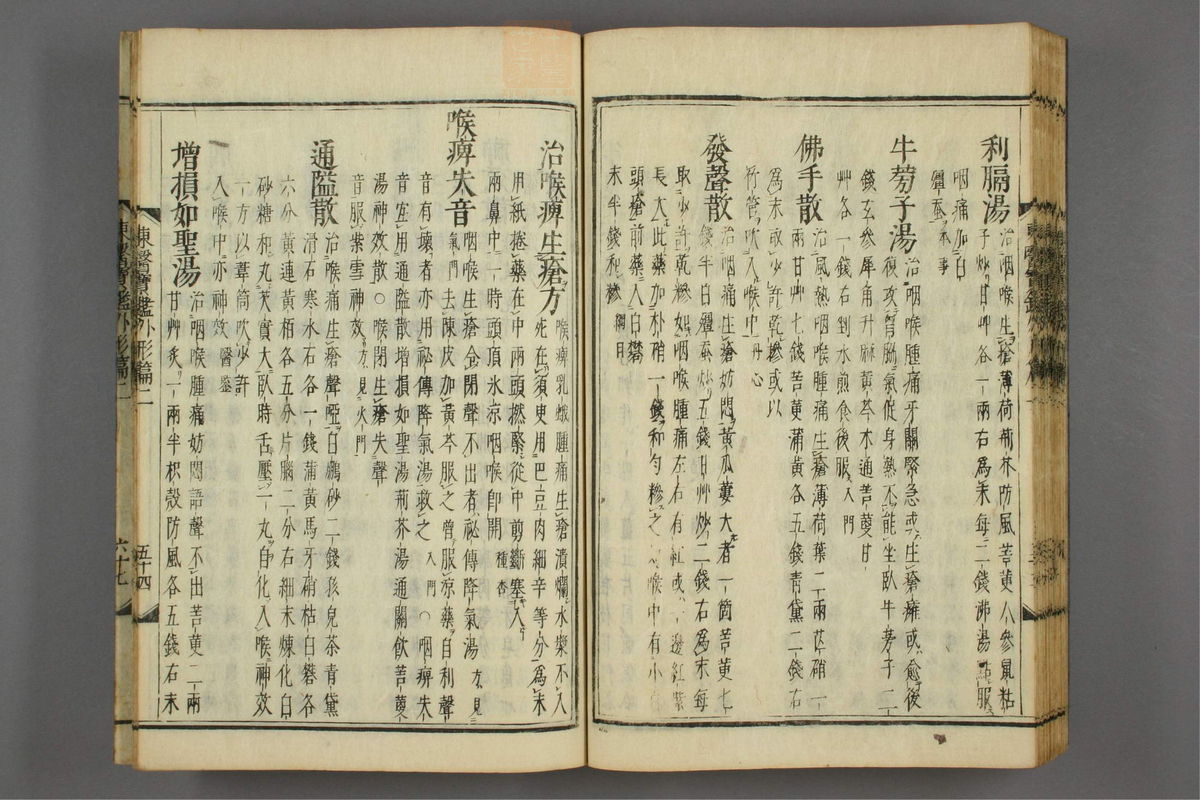 利膈湯 治咽喉生瘡薄荷荊芥防風苦莄人參鼠粘
子炒甘艸各一兩右爲末每二錢沸湯點服
咽痛加白
殭蚕 本事
牛蒡子湯 治咽喉腫痛牙關緊急或生瘡癰或愈後
復攻胷脇氣促身熱不能坐臥牛蒡子二
錢玄參犀角升麻黃芩木通苦莄甘
艸各一錢右剉水煎食後服 入門
佛手散 治風熱咽喉腫痛生瘡薄荷葉二兩芒硝一
兩甘艸七錢苦莄蒲黃各五錢靑黛二錢右
爲末或少許乾糝或以
竹管吹入喉中 丹心
發聲散 治咽痛生瘡妨悶黃瓜蔞大者一箇苦莄七
錢半白殭蚕炒五錢甘艸炒二錢右爲末每
取少許乾糝如咽喉腫痛左右有紅或一邊紅紫
長大此藥加朴硝一錢和勻糝之喉中有小白
頭瘡前藥入白礬
末半錢和糝 綱目
治喉痺生瘡方 喉痺乳蛾腫痛生瘡潰爛水漿不入
死在須臾用巴豆肉細辛等分爲末
用紙捲藥在中兩頭撚緊從中剪斷塞入
兩鼻中一時頭頂氷凉咽喉卽開 種杏
喉痺失音 咽喉生瘡合閉聲不出者祕傳降氣湯 方見
氣門 去陳皮加黃芩服之曾服凉藥自利聲
音有壞者亦用祕傳降氣湯救之 入門 ○咽痺失
音宜用通隘散增損如聖湯荊芥湯通關飮苦莄
湯神效散○喉閉生瘡失聲
音服紫雪神效 方見火門
通隘散 治喉痛生瘡聲啞白鵬砂二錢孩兒茶靑黛
滑石寒水石各一錢蒲黃馬牙硝枯白礬各
六分黃連黃栢各五分片腦二分右細末煉化白
砂糖和丸芡實大臥時舌壓一丸自化入喉神效
一方以葦筒吹少許
入喉中亦神效 醫鑒
增損如聖湯 治咽喉腫痛妨悶語聲不出苦莄二兩
甘艸炙一兩半枳殼防風各五錢右末
東醫寶鑑外形篇二
五十四
六十七